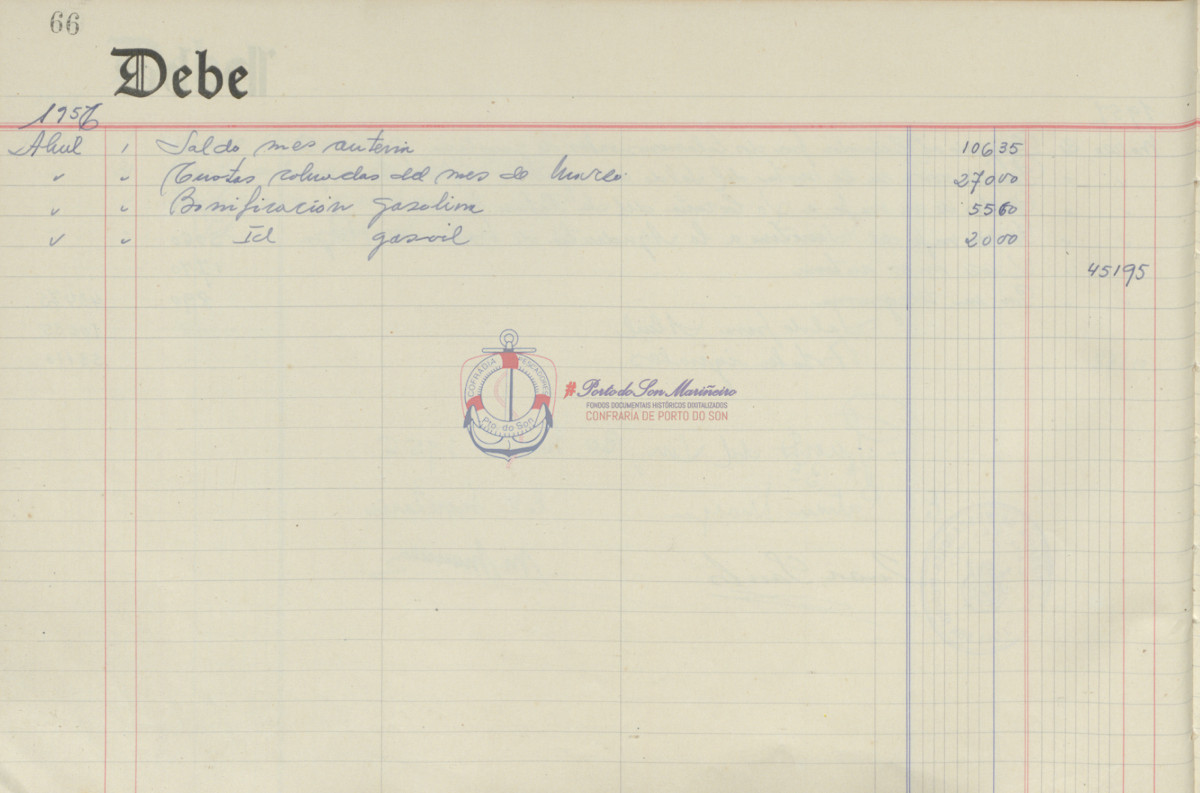 66
Debe
1956
Abril " Saldo mes anterior 106 35
" " Cuotas cobradas del mes de Marzo 270 00
" " Bonificación gasolina 55 60
" " Id gasoil 20 00
451 95
COFRADIA PESCADORES
Pto. do Son
#Porto do Son Mariñeiro
FONDOS DOCUMENTAIS HISTÓRICOS DIXITALIZADOS
CONFRARIA DE PORTO DO SON